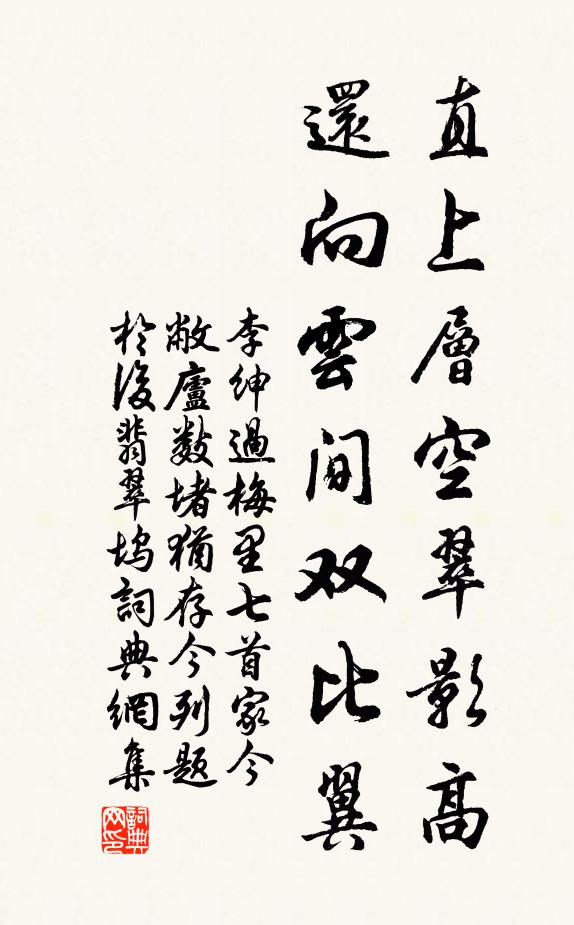 直上層空翠影高
還向雲間双比翼
李紳過梅里七首家今
敝廬數堵猶存今列題
於後翡翠塢詞典網集
詞典网印